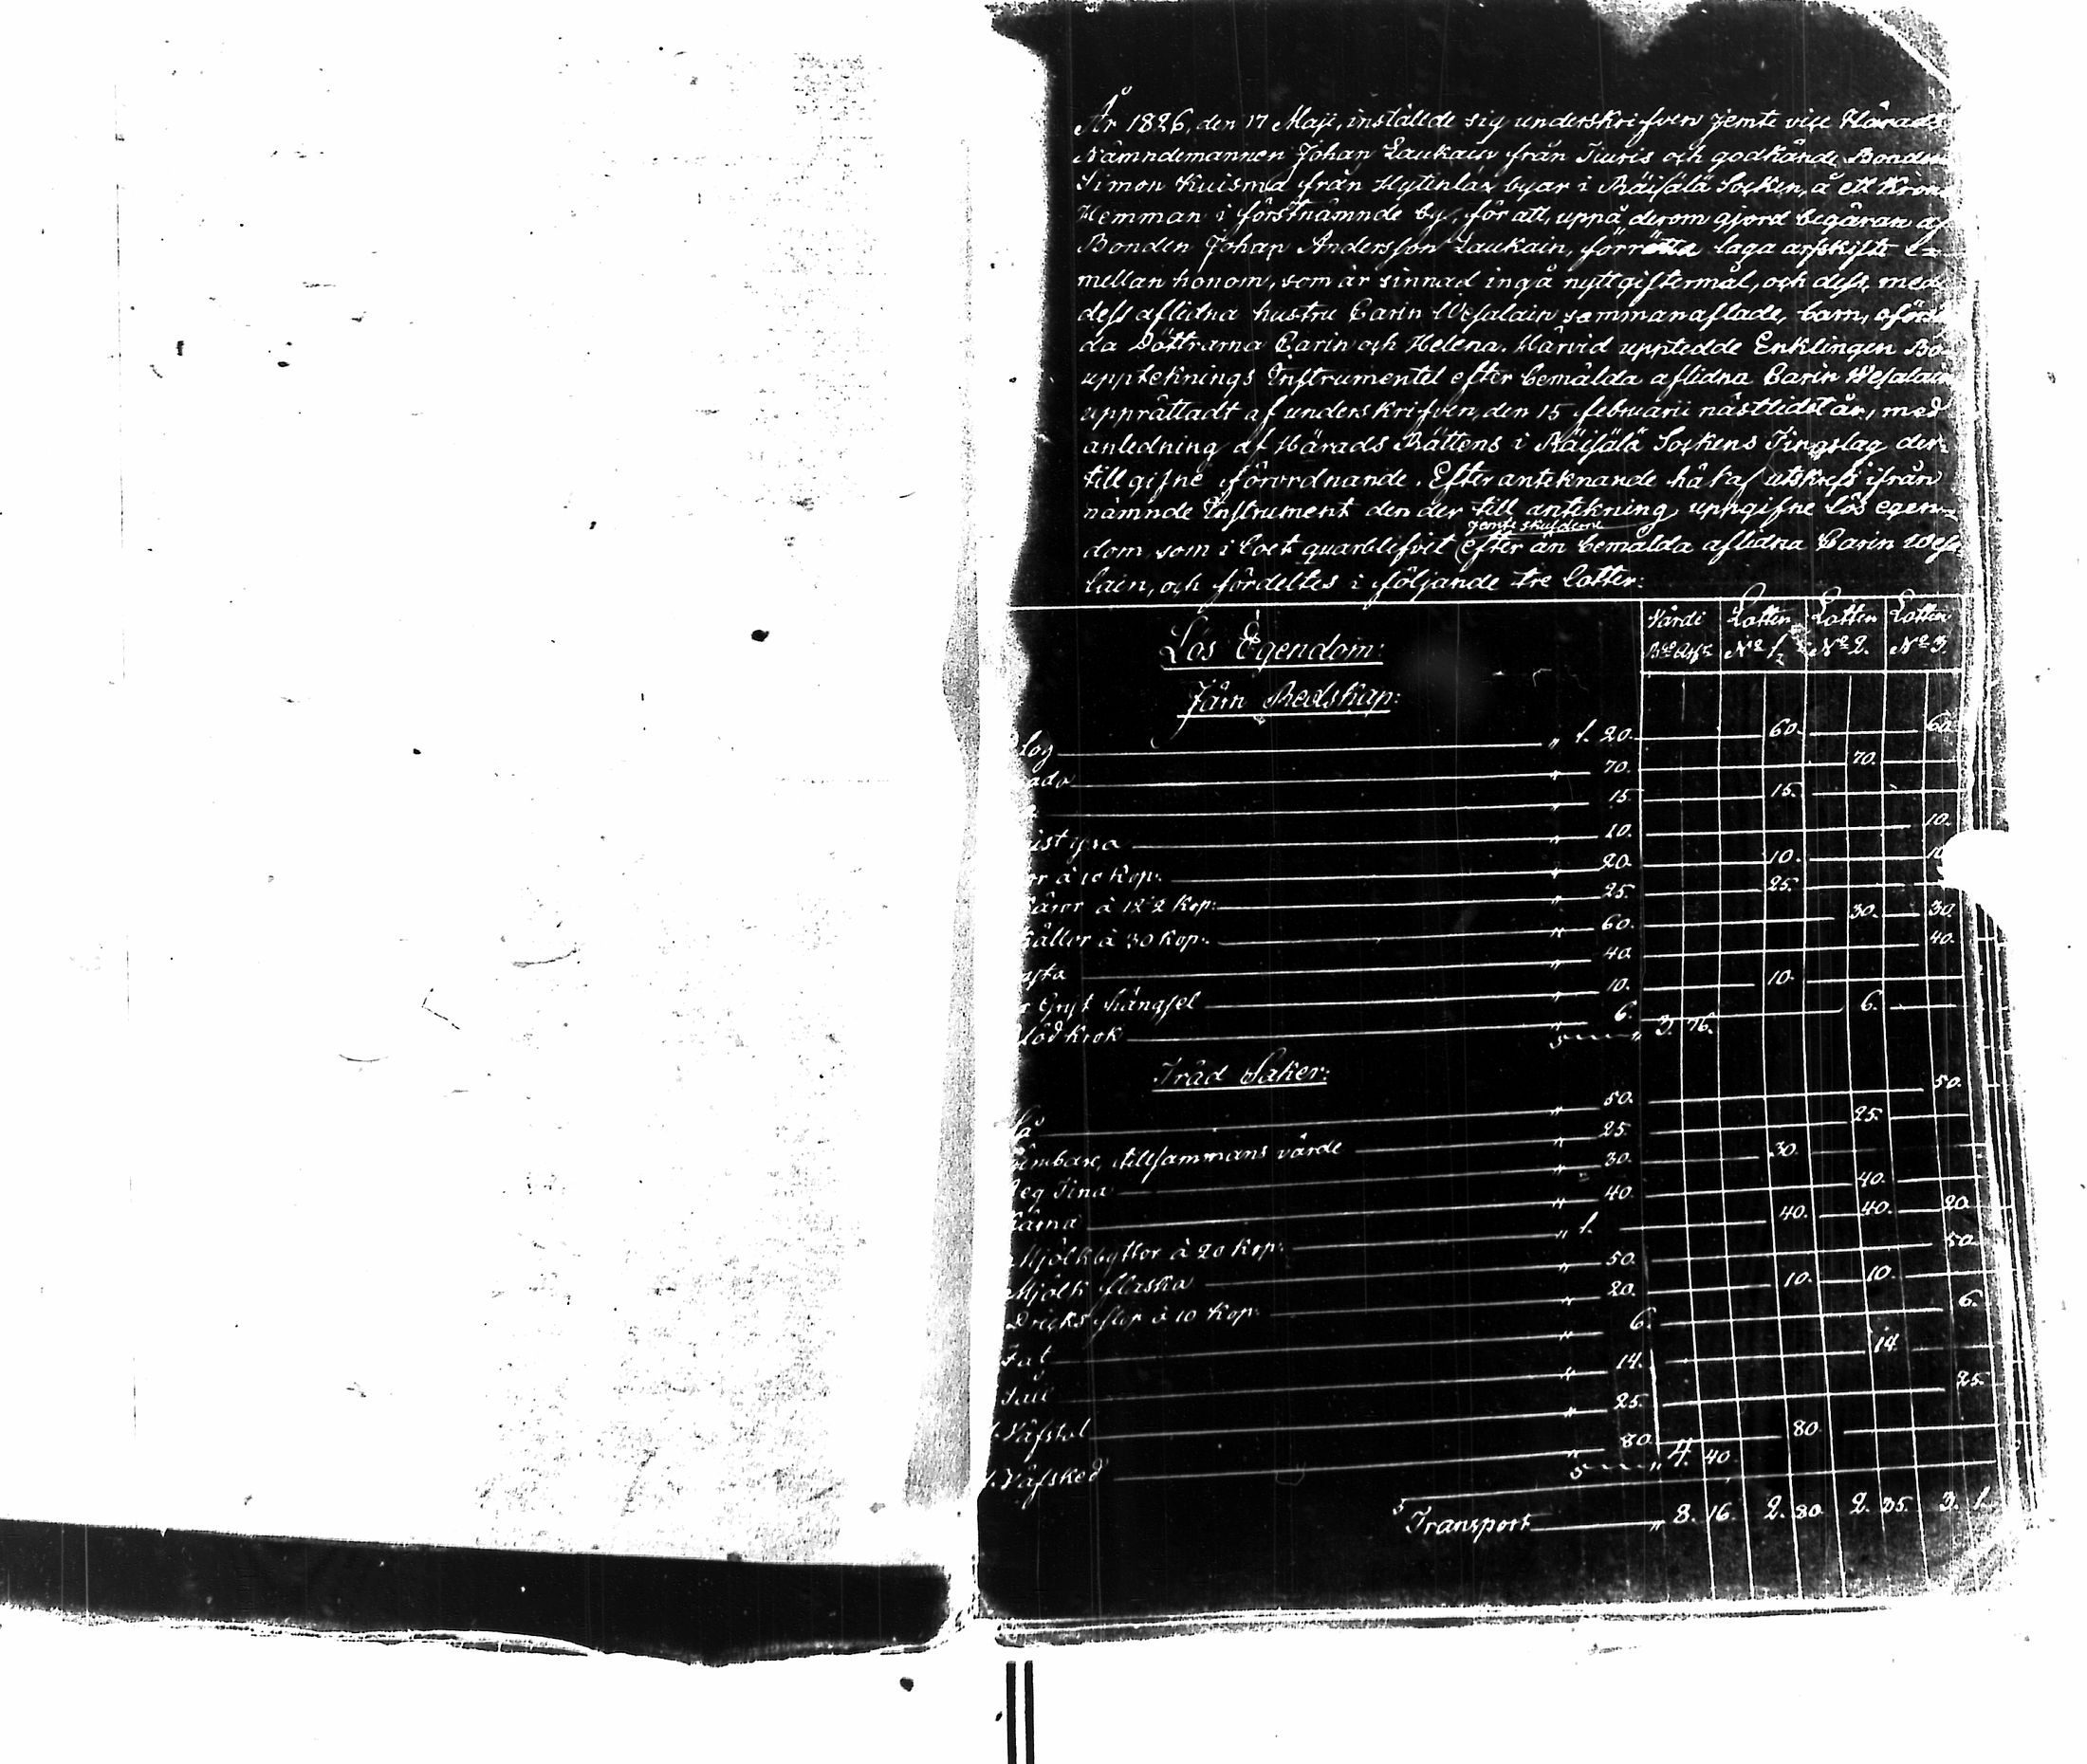 År 1826, den 17 Maji, inställde sig underskrifven jemte vice Härads
Nämndemannen Johan Laukain från Tiuris och godkände Bonden
Simon Kuisma från Hytinlax byar i Räisälä Socken, å ett Krono
Hemman i förstnämnde by, för att, uppå derom gjord begäran af
Bonden Johan Andersson Laukain, förrätta laga arfskifte e=
mellan honom, som är sinnad ingå nytt giftermål, och dess, med
dess aflidna hustru Carin Wesalain sammanaflade, barn, oförsö
da Döttrarna Carin och Helena. Härvid upptedde Enklingen Bo
uppteknings Instrumentet efter bemälda aflidna Carin Wesalain
upprättadt af underskrifven, den 15 februarii nästledet år, med
anledning af Härads Rättens i Räisälä Sockens Tingslag der=
till gifne förordnande. Efter anteknande häraf utskrefs ifrån
nämnde Instrument den der till antekning uppgifne lös egen=
jemte skulderne
dom, som i boet quarblifvit efter än bemälda aflidna Carin Wesa
lain, och fördeltes i följande tre lotter:
Lös Egendom: Värdi Lotten Lotten Lotten
Nº 1. Nº 2. Nº 3.
Järn Redskap:
log " 1. 20. 60. 60.
" 70. 70.
" 15. 15.
" 10. 10.
or à 10 Kop. " 20. 10. 10
äror à 12½ Kop. " 25. 25.
ållor à 30 Kop. " 60. 30. 30.
" 40. 40.
Gryt hängsel " 10. 10.
löd krok " 6. " 3. 76. 6.
Träd Saker:
" 50. 50.
ämbare, tillsammans värde " 25. 25.
eg Tina " 30. 30.
ärna " 40. 40.
Mjölkbyttor à 20 Kop. " 1. 40. 40. 20.
Mjölk flaska " 50. 50.
Dricks stop à 10 Kop. " 20. 10. 10.
Fat " 6. 6.
" 14. 14.
Väfstol " 25. 25.
Väfsked " 80. " 4. 40. 80.
Transport " 8. 16. 2. 80. 2. 35. 3. 1.